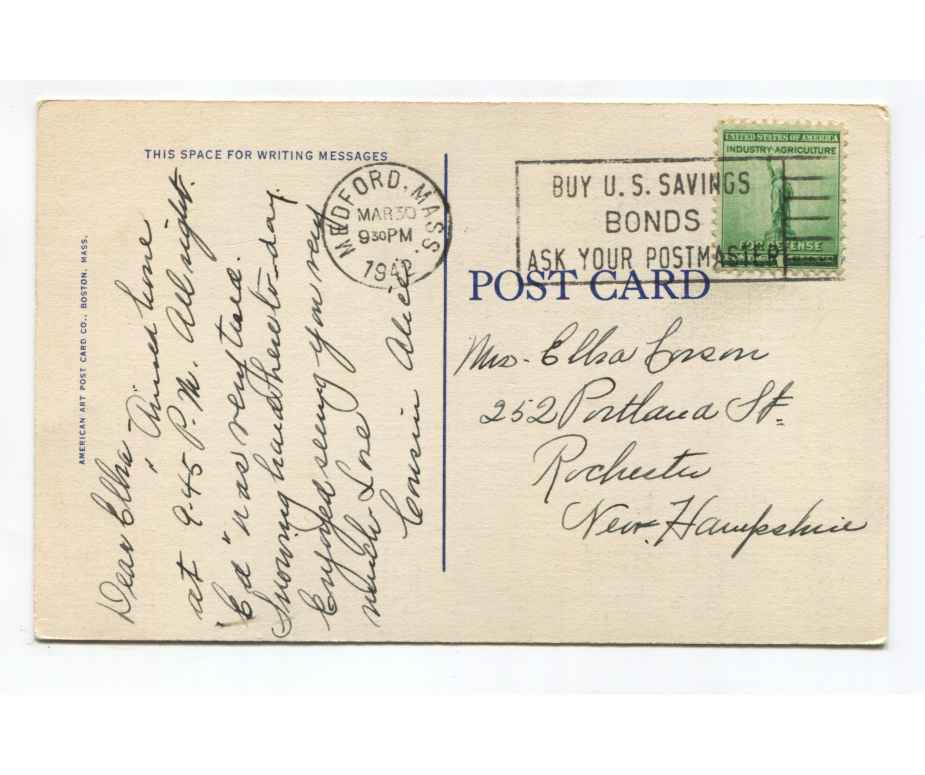 THIS SPACE FOR WRITING MESSAGES
AMERICAN ART POST CARD CO., BOSTON, MASS.
Dear Elba -
Arrived home
at 9-45 P.M. All right.
"Ed" was very tired.
Snowing hard here to-day.
Enjoyed seeing you very
much. Love
Cousin Alice
MEDFORD, MASS.
MAR 30
9 30 PM
BUY U.S. SAVINGS
BONDS
ASK YOUR POSTMASTER
UNITED STATES OF AMERICA
INDUSTRY·AGRICULTURE
DEFENSE
POST CARD
Mrs. Elba Corson
252 Portland St.
Rochester
New Hampshire